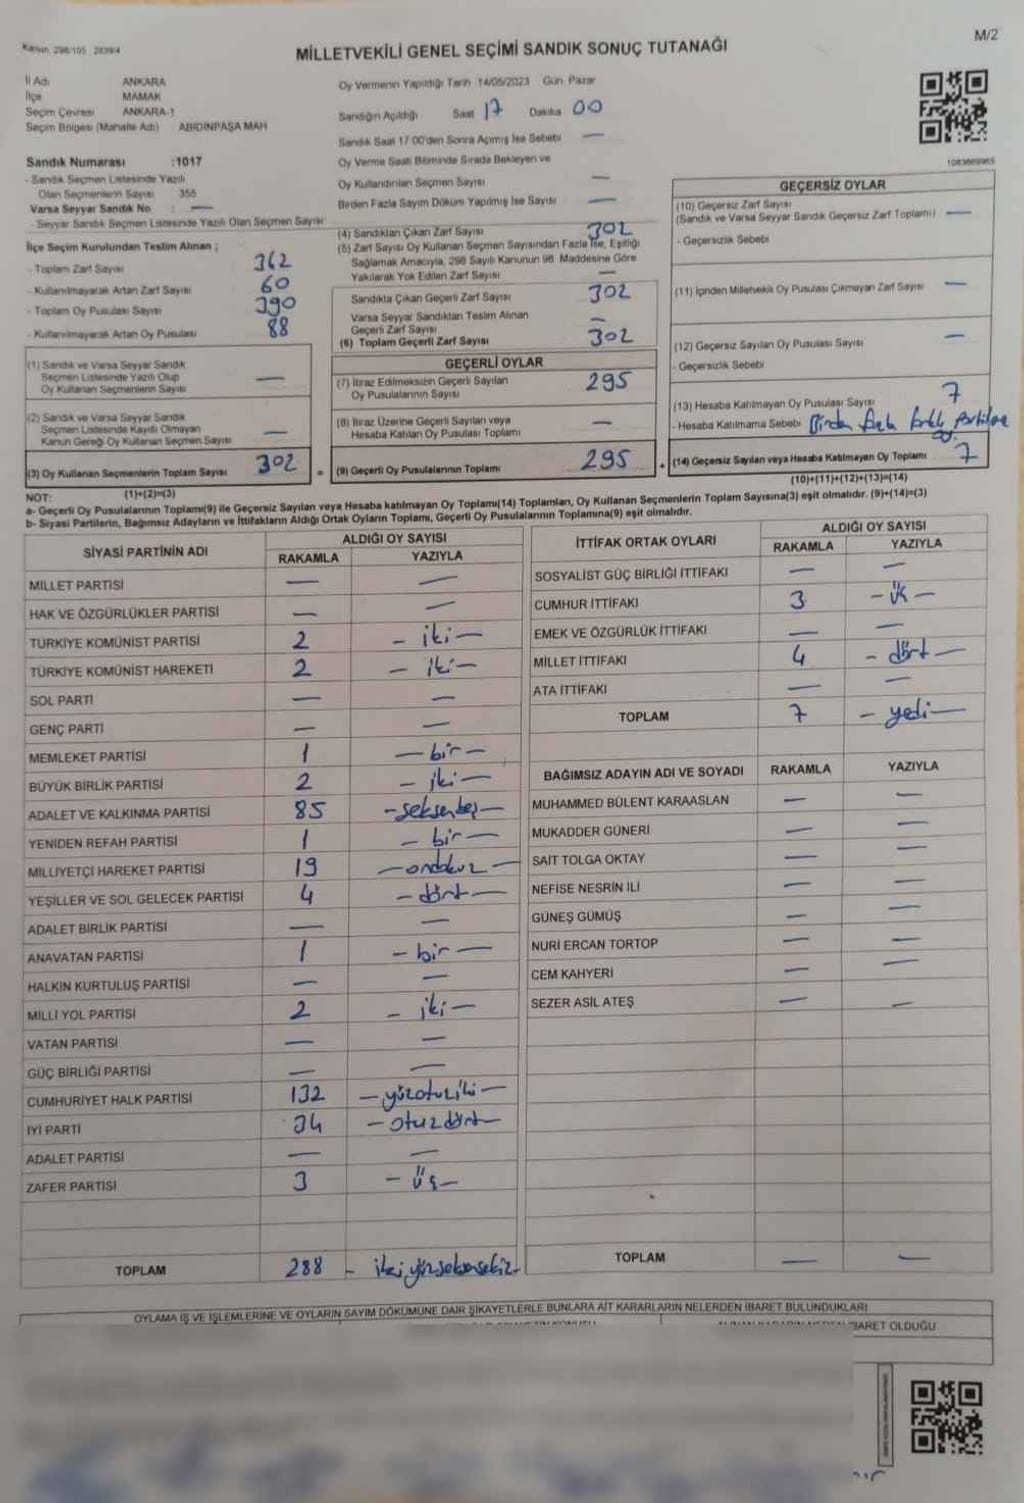 Kanun 298/105 2839/4
M/2
MİLLETVEKİLİ GENEL SEÇİMİ SANDIK SONUÇ TUTANAĞI
İl Adı ANKARA
İlçe MAMAK
Seçim Çevresi ANKARA-1
Seçim Bölgesi (Mahalle Adı) ABİDİNPAŞA MAH
Sandık Numarası :1017
- Sandık Seçmen Listesinde Yazılı
Olan Seçmenlerin Sayısı 355
Varsa Seyyar Sandık No : —
- Seyyar Sandık Seçmen Listesinde Yazılı Olan Seçmen Sayısı
İlçe Seçim Kurulundan Teslim Alınan ;
- Toplam Zarf Sayısı 362
- Kullanılmayarak Artan Zarf Sayısı 60
- Toplam Oy Pusulası Sayısı 390
- Kullanılmayarak Artan Oy Pusulası 88
(1) Sandık ve Varsa Seyyar Sandık
Seçmen Listesinde Yazılı Olup
Oy Kullanan Seçmenlerin Sayısı —
(2) Sandık ve Varsa Seyyar Sandık
Seçmen Listesinde Kayıtlı Olmayan
Kanun Gereği Oy Kullanan Seçmen Sayısı —
(3) Oy Kullanan Seçmenlerin Toplam Sayısı 302
(1)+(2)=(3)
Oy Vermenin Yapıldığı Tarih 14/05/2023 Gün Pazar
Sandığın Açıldığı Saat 17 Dakika 00
Sandık Saat 17:00'den Sonra Açılmış İse Sebebi —
Oy Verme Saati Bitiminde Sırada Bekleyen ve
Oy Kullandırılan Seçmen Sayısı —
Birden Fazla Sayım Döküm Yapılmış İse Sayısı —
(4) Sandıktan Çıkan Zarf Sayısı 302
(5) Zarf Sayısı Oy Kullanan Seçmen Sayısından Fazla İse, Eşitliği
Sağlamak Amacıyla, 298 Sayılı Kanunun 98. Maddesine Göre
Yakılarak Yok Edilen Zarf Sayısı —
Sandıkta Çıkan Geçerli Zarf Sayısı 302
Varsa Seyyar Sandıktan Teslim Alınan
Geçerli Zarf Sayısı —
(6) Toplam Geçerli Zarf Sayısı 302
GEÇERLİ OYLAR
(7) İtiraz Edilmeksizin Geçerli Sayılan
Oy Pusulalarının Sayısı 295
(8) İtiraz Üzerine Geçerli Sayılan veya
Hesaba Katılan Oy Pusulası Toplamı —
= (9) Geçerli Oy Pusulalarının Toplamı 295
1083669965
GEÇERSİZ OYLAR
(10) Geçersiz Zarf Sayısı
(Sandık ve Varsa Seyyar Sandık Geçersiz Zarf Toplamı) —
- Geçersizlik Sebebi
(11) İçinden Milletvekili Oy Pusulası Çıkmayan Zarf Sayısı —
(12) Geçersiz Sayılan Oy Pusulası Sayısı —
- Geçersizlik Sebebi
(13) Hesaba Katılmayan Oy Pusulası Sayısı 7
- Hesaba Katılmama Sebebi Birden fazla farklı partilere oy
+ (14) Geçersiz Sayılan veya Hesaba Katılmayan Oy Toplamı 7
(10)+(11)+(12)+(13)=(14)
NOT:
a- Geçerli Oy Pusulalarının Toplamı(9) ile Geçersiz Sayılan veya Hesaba katılmayan Oy Toplamı(14) Toplamları, Oy Kullanan Seçmenlerin Toplam Sayısına(3) eşit olmalıdır. (9)+(14)=(3)
b- Siyasi Partilerin, Bağımsız Adayların ve İttifakların Aldığı Ortak Oyların Toplamı, Geçerli Oy Pusulalarının Toplamına(9) eşit olmalıdır.
SİYASİ PARTİNİN ADI ALDIĞI OY SAYISI
RAKAMLA YAZIYLA
MİLLET PARTİSİ — —
HAK VE ÖZGÜRLÜKLER PARTİSİ — —
TÜRKİYE KOMÜNİST PARTİSİ 2 - iki -
TÜRKİYE KOMÜNİST HAREKETİ 2 - iki -
SOL PARTİ — —
GENÇ PARTİ — —
MEMLEKET PARTİSİ 1 - bir -
BÜYÜK BİRLİK PARTİSİ 2 - iki -
ADALET VE KALKINMA PARTİSİ 85 - seksenbeş -
YENİDEN REFAH PARTİSİ 1 - bir -
MİLLİYETÇİ HAREKET PARTİSİ 19 - ondokuz -
YEŞİLLER VE SOL GELECEK PARTİSİ 4 - dört -
ADALET BİRLİK PARTİSİ — —
ANAVATAN PARTİSİ 1 - bir -
HALKIN KURTULUŞ PARTİSİ — —
MİLLİ YOL PARTİSİ 2 - iki -
VATAN PARTİSİ — —
GÜÇ BİRLİĞİ PARTİSİ — —
CUMHURİYET HALK PARTİSİ 132 - yüzotuziki -
İYİ PARTİ 34 - otuzdört -
ADALET PARTİSİ — —
ZAFER PARTİSİ 3 - üç -
TOPLAM 288 - ikiyüzseksensekiz -
İTTİFAK ORTAK OYLARI ALDIĞI OY SAYISI
RAKAMLA YAZIYLA
SOSYALİST GÜÇ BİRLİĞİ İTTİFAKI — —
CUMHUR İTTİFAKI 3 - üç -
EMEK VE ÖZGÜRLÜK İTTİFAKI — —
MİLLET İTTİFAKI 4 - dört -
ATA İTTİFAKI — —
TOPLAM 7 - yedi -
BAĞIMSIZ ADAYIN ADI VE SOYADI RAKAMLA YAZIYLA
MUHAMMED BÜLENT KARAASLAN — —
MUKADDER GÜNERİ — —
SAİT TOLGA OKTAY — —
NEFİSE NESRİN İLİ — —
GÜNEŞ GÜMÜŞ — —
NURİ ERCAN TORTOP — —
CEM KAHYERİ — —
SEZER ASİL ATEŞ — —
TOPLAM — —
OYLAMA İŞ VE İŞLEMLERİNE VE OYLARIN SAYIM DÖKÜMÜNE DAİR ŞİKAYETLERLE BUNLARA AİT KARARLARIN NELERDEN İBARET BULUNDUKLARI
İBARET OLDUĞU